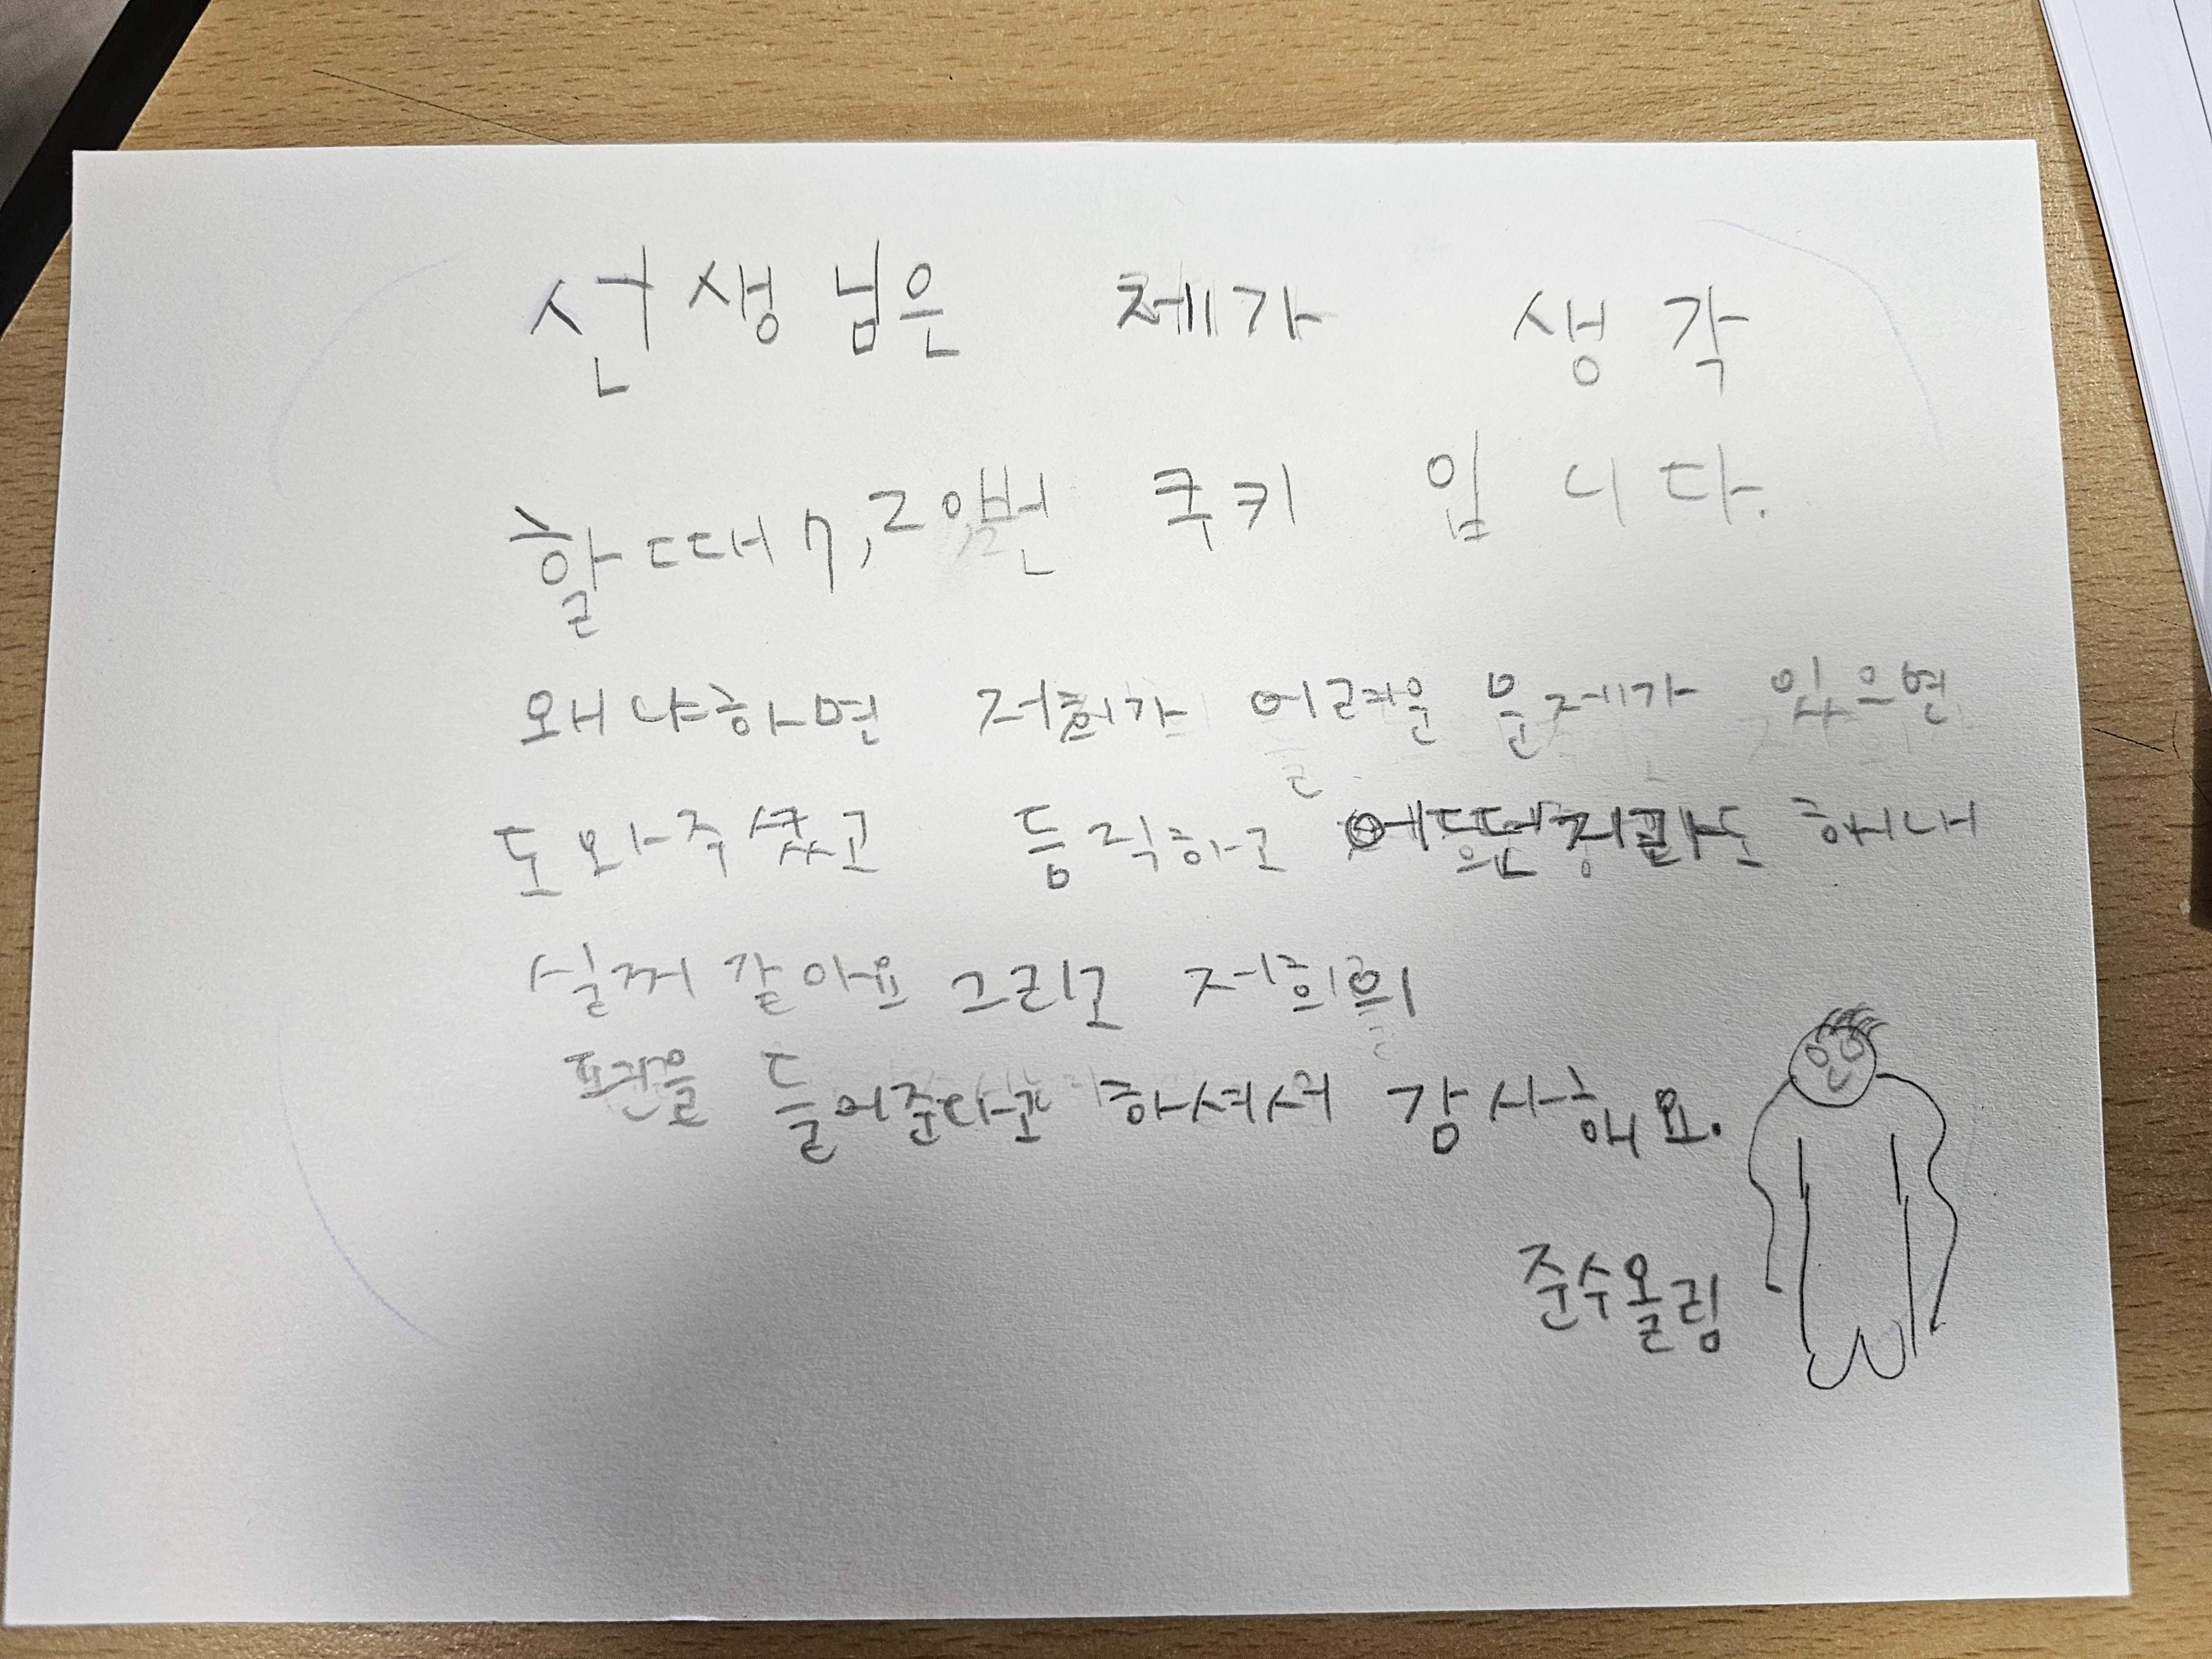 선생님은 체가 생각
할때 7,2일번 쿠키 입니다.
왜냐하면 저희가 어려운 문제가 있으면
도와주셨고 듬직하고 해내
실꺼 같아요 그리고 저희의
표관을 들어준다고 하셔서 감사해요.
준수올림